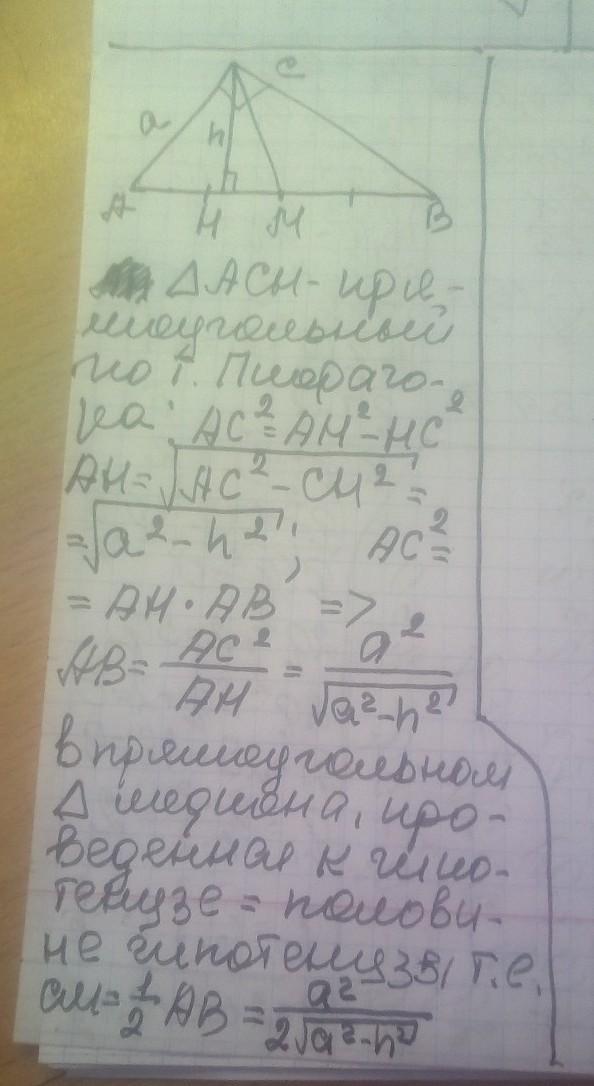 C
a
h
A
H
M
B
△ACH - пря-
моугольный
по т. Пифаго-
ра: AC² = AH² - HC²
AH = √(AC² - CH²) =
= √(a² - h²); AC² =
= AH · AB =>
AB = AC²/AH = a²/√(a² - h²)
в прямоугольном
△ медиана, про-
веденная к гипо-
тенузе = полови-
не гипотенузы, т.е.
CM = 1/2 AB = a²/(2√(a² - h²))